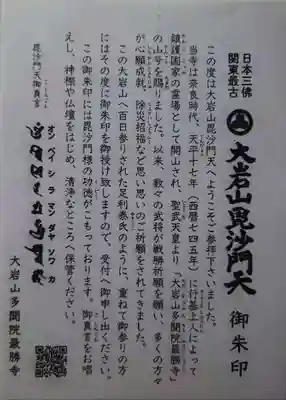 日本三佛
関東最古
大岩山毘沙門天 御朱印
この度は大岩山毘沙門天へようこそご参拝下さいました。
当寺は奈良時代、天平十七年(西暦七四五年)に行基上人によって
鎮護国家の霊場として開山され、聖武天皇より「大岩山多聞院最勝寺」
の山号を賜りました。以来、数々の武将が戦勝祈願を願い、多くの方々
が心願成就、除災招福など思い思いのご祈願をされてきました。
この大岩山へ百日参りされた足利泰氏のように、重ねて御参りの方
にはその度に御朱印を御授け致しますので、受付へ御申し出ください。
この御朱印には毘沙門様の功徳がこもっております。御真言をお唱
えし、神棚や仏壇をはじめ、清浄なところへ保管ください。
毘沙門天御真言
オン ベイ シラ マン ダヤ ソワ カ
大岩山多聞院最勝寺